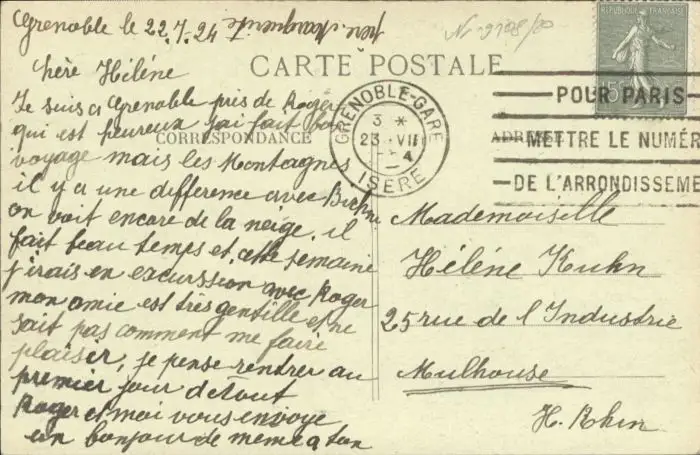 Grenoble le 22.7.24
père. Marguerite
Nr 9108/20
RÉPUBLIQUE FRANÇAISE
15
CARTE POSTALE
CORRESPONDANCE
ADRESSE
GRENOBLE-GARE
3 *
23 · VII
ISÈRE
POUR PARIS
METTRE LE NUMÉR
DE L'ARRONDISSEME
hère Hélène
Je suis a Grenoble près de Roger
qui est heureux jai fait bon
voyage mais les Montagnes
il y a une difference avec
on voit encore de la neige, il
fait beau temps et, cette semaine
j'irais en excurssion avec Roger
mon amie est très gentille et ne
sait pas comment me faire
plaisir, je pense rentrer au
premier jour d'Aout
Roger et moi vous envoye
un bonjour de meme a ton
Mademoiselle
Hélène Kuhn
25 rue de l'Industrie
Mulhouse
H. Rhin